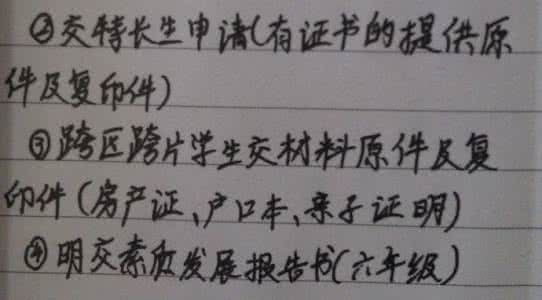 ②交特长生申请(有证书的提供原
件及复印件)
③跨区跨片学生交材料原件及复
印件(房产证、户口本、亲子证明)
④明交素质发展报告书(六年级)